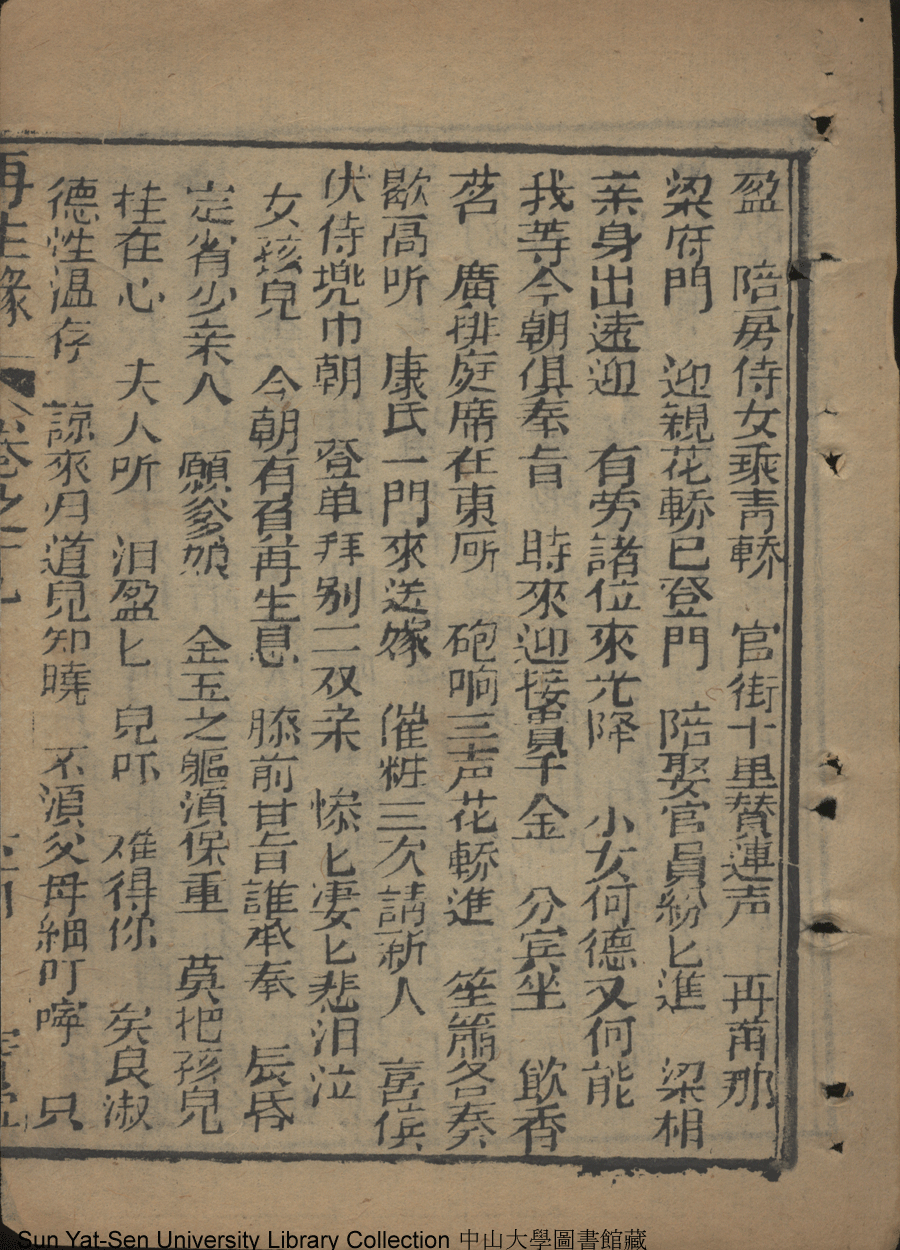 盈　陪房侍女乘青轎　官街十里賛連声　再甫那
梁府門　迎親花轎已登門　陪娶官員紛匕進　梁相
亲身出遠迎　有劳諸位來光降　小女何德又何能
我等今朝俱奉旨　時來迎接貴千金　分宾坐　飲香
茗　廣排庭席在東所　砲响三声花轎進　笙簫各奏
歇高听　康氏一門來送嫁　催粧三次請新人　喜傧
伏侍兠巾朝　登单拜别二双亲　惨匕凄匕悲泪泣
女孩兒　今朝有負再生息　膝前甘旨誰承奉　辰昏
定省少亲人　願爹娘　金玉之軀湏保重　莫把孩兒
桂在心　夫人听　泪盈匕　兒吓　难得你　矣良淑
德性温存　諒來归道兒知曉　不湏父母細叮嚀　只
再生緣　卷之十九
Sun Yat-Sen University Library Collection 中山大學圖書館藏